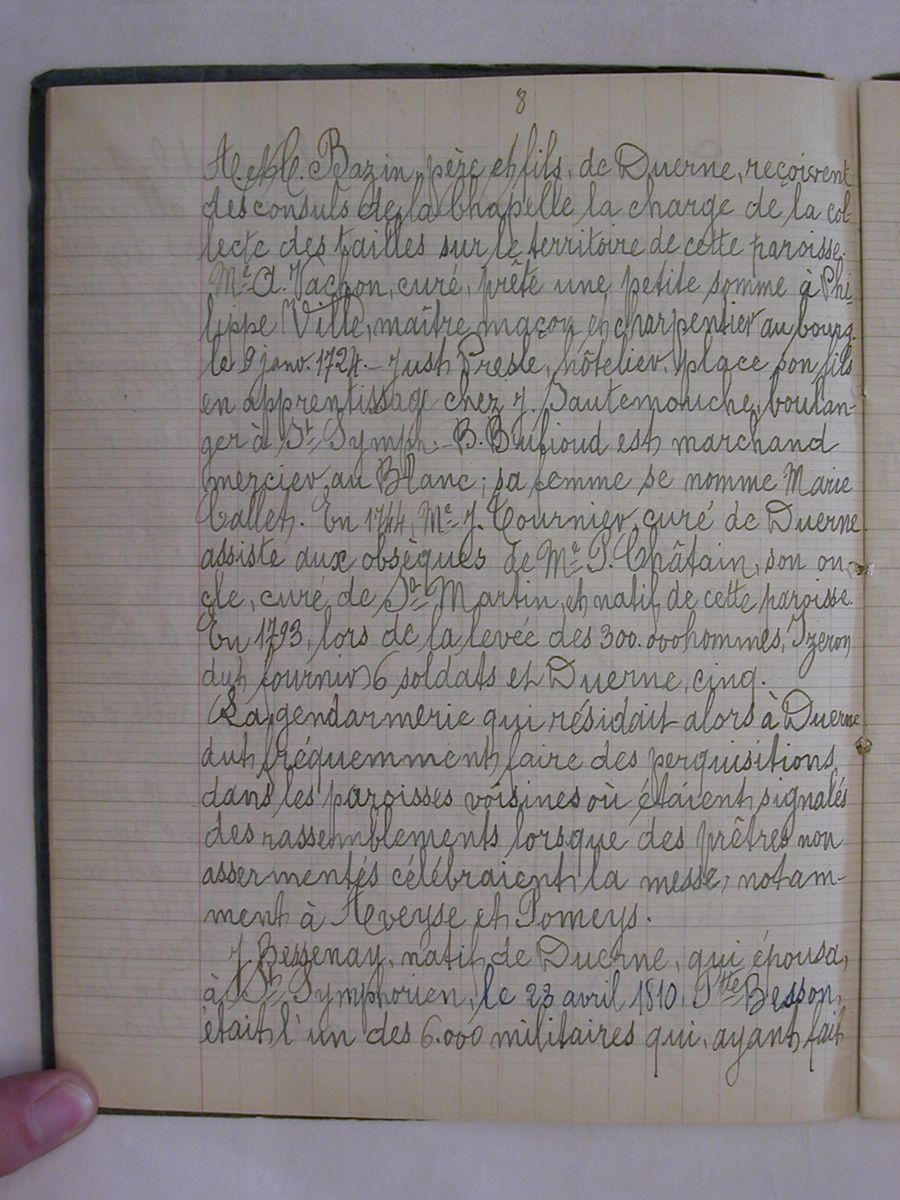 8
A. et C. Bazin, père et fils, de Duerne, reçoivent
des consuls de la Chapelle la charge de la col-
lecte des tailles sur le territoire de cette paroisse.
Me A. Vachon, curé, prête une petite somme à Phi-
lippe Ville, maître maçon et charpentier au bourg
le 9 janv. 1724. – Just Presle, hôtelier, place son fils
en apprentissage chez J. Sautemouche, boulan-
ger à St Symph. – B. Bufioud est marchand
mercier au Blanc ; sa femme se nomme Marie
Callet. En 1744, Me J. Tournier, curé de Duerne
assiste aux obsèques de Me P. Châtain, son on-
cle, curé de St Martin, et natif de cette paroisse.
En 1793, lors de la levée des 300.000 hommes, Izeron
dut fournir 6 soldats et Duerne, cinq.
La gendarmerie qui résidait alors à Duerne
dut fréquemment faire des perquisitions
dans les paroisses voisines où étaient signalés
des rassemblements lorsque des prêtres non
assermentés célébraient la messe, notam-
ment à Aveyse et Pomeys.
J. Bessenay, natif de Duerne, qui épousa,
à St Symphorien, le 23 avril 1810, Ptte Besson,
était l'un des 6.000 militaires qui, ayant fait